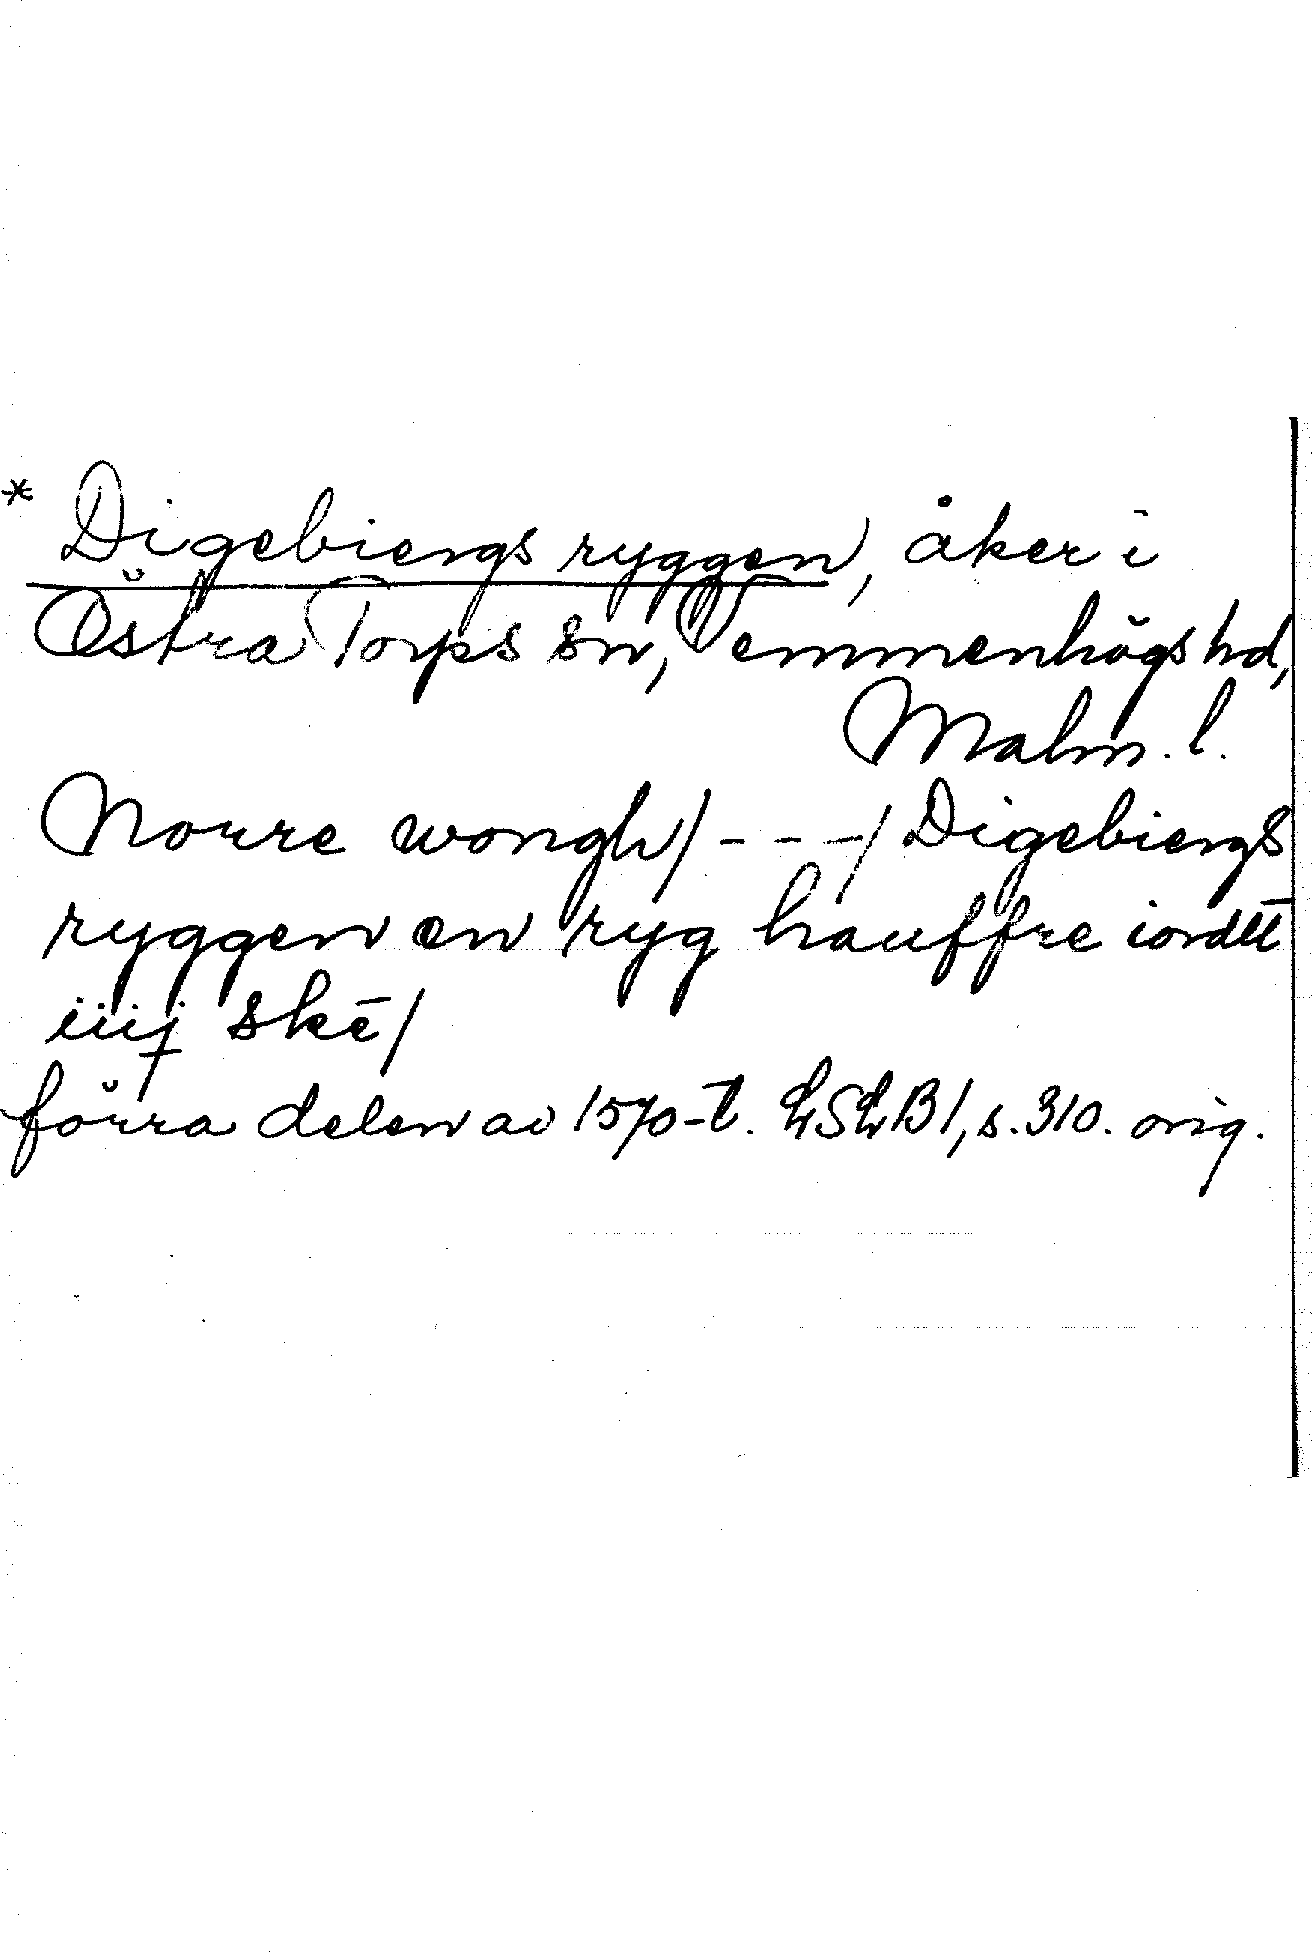 * Digebiergs ryggen, åker i
Östra Torps sn, Vemmenhögs hd,
Malm. l.
Norre wongh/ - - -/ Digebiergs
ryggen en ryg hauffre iordtt
iiij skē/
förra delen av 1570-t. LSLB1, s. 310. orig.